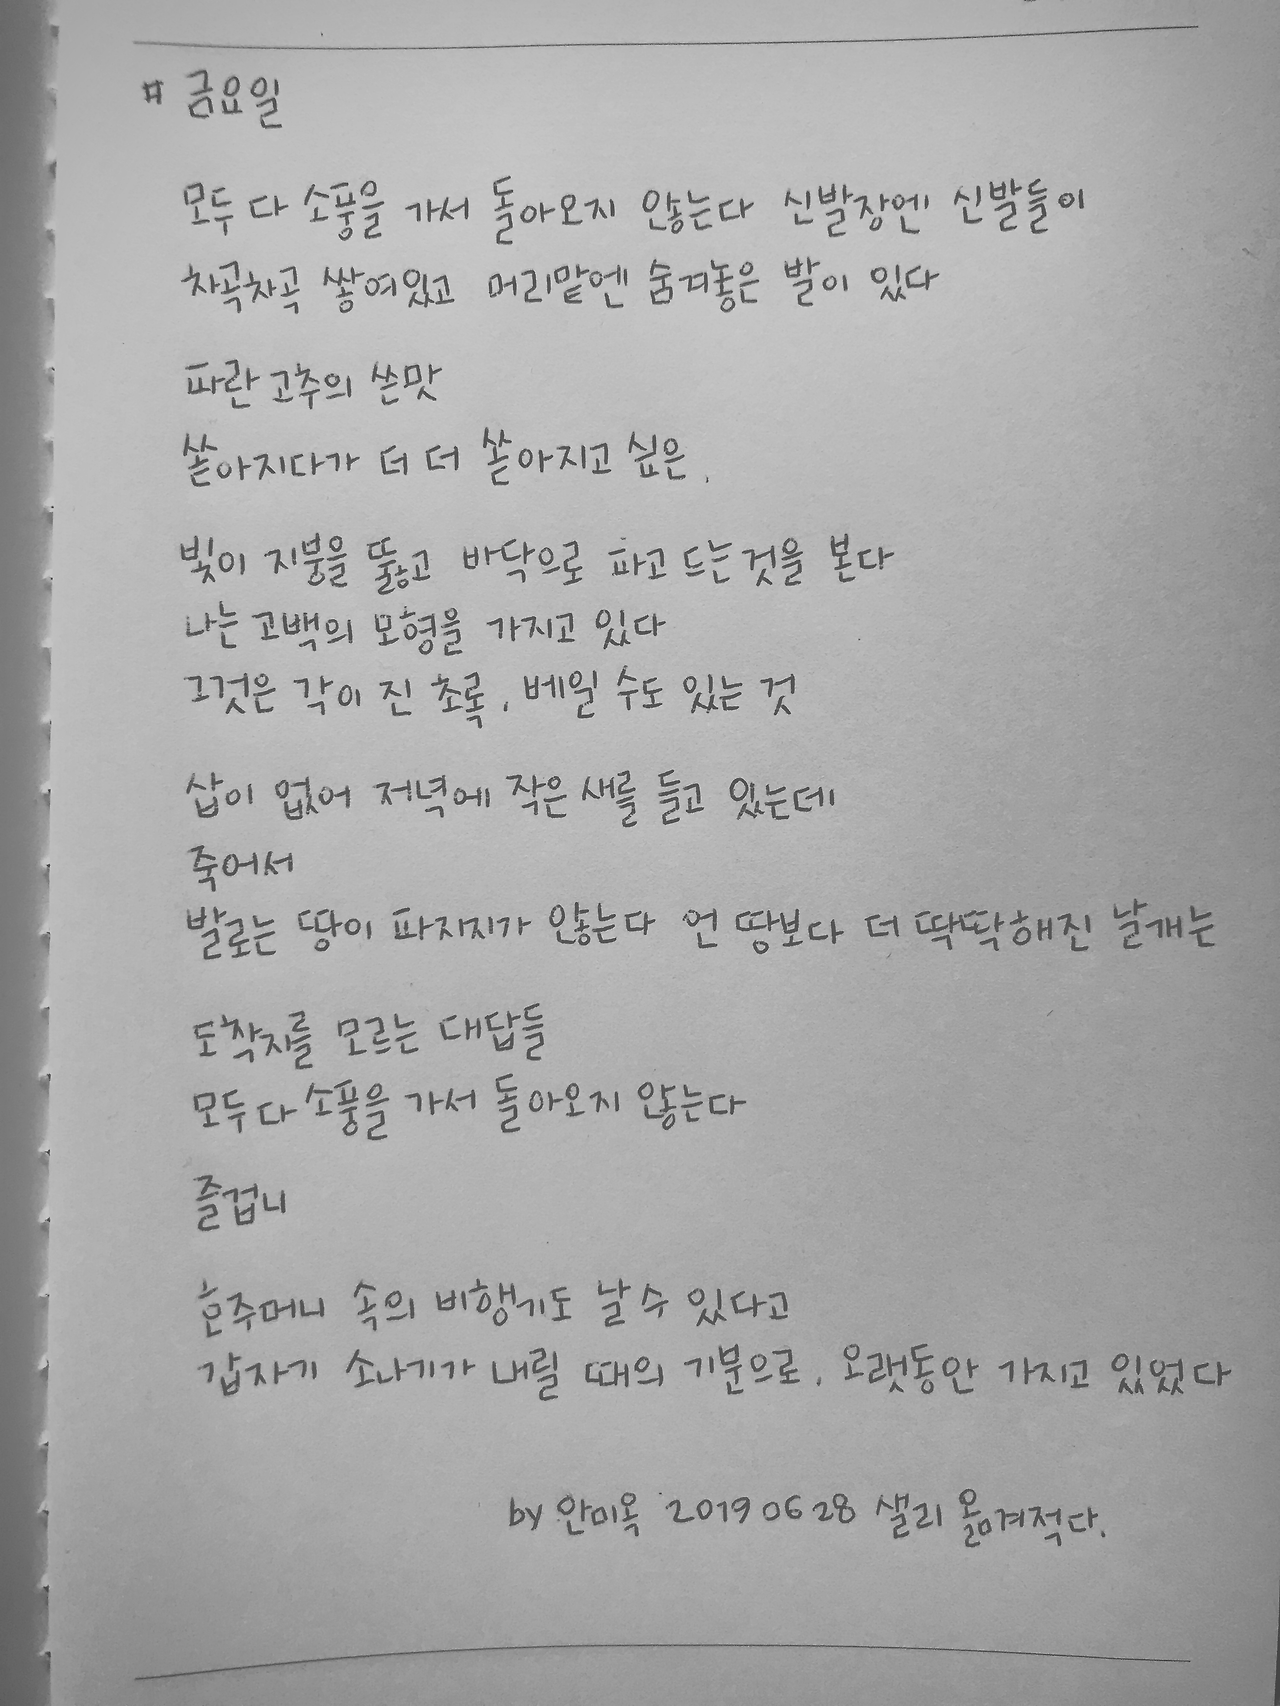 # 금요일
모두 다 소풍을 가서 돌아오지 않는다 신발장엔 신발들이
차곡차곡 쌓여있고 머리맡엔 숨겨놓은 발이 있다
파란 고추의 쓴맛
쏟아지다가 더 더 쏟아지고 싶은.
빛이 지붕을 뚫고 바닥으로 파고 드는 것을 본다
나는 고백의 모형을 가지고 있다
그것은 각이 진 초록, 베일 수도 있는 것
삽이 없어 저녁에 작은 새를 들고 있는데
죽어서
발로는 땅이 파지지가 않는다 언 땅보다 더 딱딱해진 날개는
도착지를 모르는 대답들
모두 다 소풍을 가서 돌아오지 않는다
즐겁니
호주머니 속의 비행기도 날 수 있다고
갑자기 소나기가 내릴 때의 기분으로, 오랫동안 가지고 있었다
by 안미옥 20190628 샐리 옮겨적다.